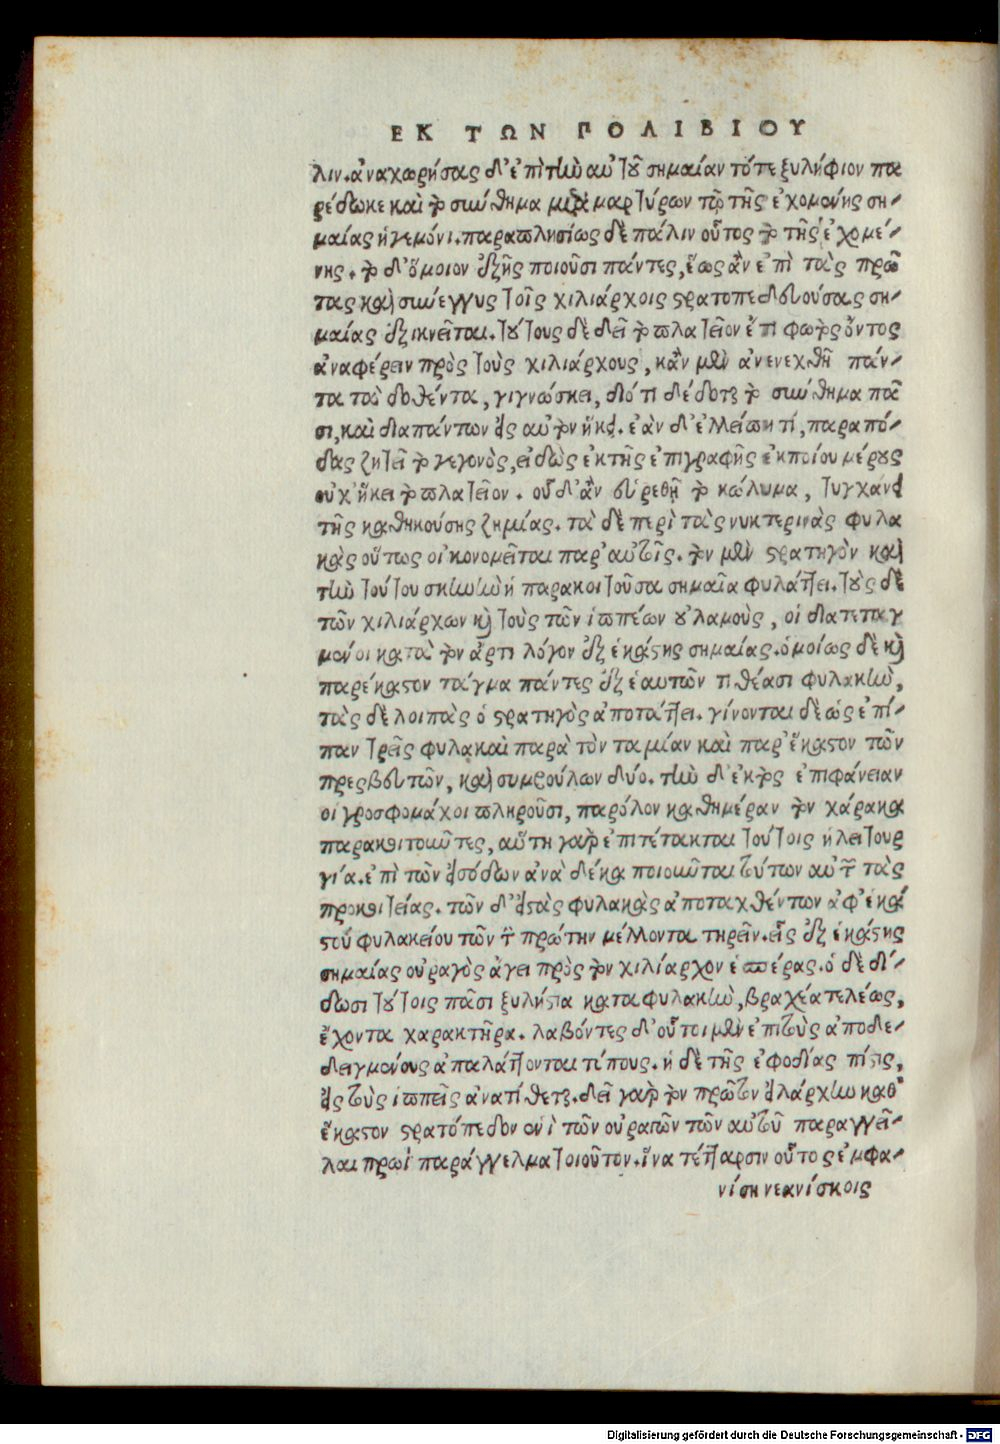 ΕΚ ΤΩΝ ΠΟΛΙΒΙΟΥ
λιν. ἀναχωρήσας δ' ἐπὶ τὴν αὐτοῦ σημαίαν τότε ξυλήφιον πα
ρέδωκε καὶ τὸ σύνθημα μετὰ μαρτύρων τῷ τῆς ἐχομένης ση-
μαίας ἡγεμόνι. παραπλησίως δὲ πάλιν οὗτος τῷ τῆς ἐχομέ-
νης. τὸ δ' ὅμοιον ἑξῆς ποιοῦσι πάντες, ἕως ἂν ἐπὶ τὰς πρώ
τας καὶ συνέγγυς τοῖς χιλιάρχοις στρατοπεδευούσας ση-
μαίας ἐξικνεῖται. τούτους δὲ δεῖ τὸ πλατεῖον ἔτι φωτὸς ὄντος
ἀναφέρειν πρὸς τοὺς χιλιάρχους, κἂν μὲν ἀνενεχθῇ πάν-
τα τὰ δοθέντα, γιγνώσκει, διότι δέδοται τὸ σύνθημα πᾶ
σι, καὶ διαπάντων εἰς αὐτὸν ἥκει. ἐὰν δ' ἐλλείπῃ τί, παραπό-
δας ζητεῖ τὸ γεγονὸς, εἰδὼς ἐκ τῆς ἐπιγραφῆς ἐκ ποίου μέρους
οὐχ ἥκει τὸ πλατεῖον. οὗ δ' ἂν εὑρεθῇ τὸ κώλυμα, τυγχάνει
τῆς καθηκούσης ζημίας. τὰ δὲ περὶ τὰς νυκτερινὰς φυλα
κὰς οὕτως οἰκονομεῖται παρ' αὐτοῖς. τὸν μὲν στρατηγὸν καὶ
τὴν τούτου σκηνὴν ἡ παρακοιτοῦσα σημαῖα φυλάττει. τοὺς δὲ
τῶν χιλιάρχων καὶ τοὺς τῶν ἱππέων οὐλαμοὺς, οἱ διατεταγ
μένοι κατὰ τὸν ἄρτι λόγον ἐξ ἑκάστης σημαίας. ὁμοίως δὲ καὶ
παρέκαστον τάγμα πάντες ἐξ ἑαυτῶν τιθέασι φυλακὴν,
τὰς δὲ λοιπὰς ὁ στρατηγὸς ἀποτάττει. γίνονται δὲ ὡς ἐπί-
παν τρεῖς φυλακαὶ παρὰ τὸν ταμίαν καὶ παρ' ἕκαστον τῶν
πρεσβευτῶν, καὶ συμβούλων δύο. τὴν δ' ἐκτὸς ἐπιφάνειαν
οἱ γροσφομάχοι πληροῦσι, παρόλον καθημέραν τὸν χάρακα
παρακοιτοῦντες, αὕτη γὰρ ἐπιτέτακται τούτοις ἡ λειτουρ
γία. ἐπὶ τῶν εἰσόδων ἀνὰ δέκα ποιοῦνται τούτων αὐτῶν τὰς
προκοιτείας. τῶν δ' εἰς τὰς φυλακὰς ἀποταχθέντων ἀφ' ἑκά
στου φυλακείου τῶν τὴν πρώτην μέλλοντα τηρεῖν. εἷς ἐξ ἑκάστης
σημαίας οὐραγὸς ἄγει πρὸς τὸν χιλίαρχον ἑσπέρας. ὁ δὲ δί-
δωσι τούτοις πᾶσι ξυλήφια κατὰ φυλακὴν, βραχέα τελέως,
ἔχοντα χαρακτῆρα. λαβόντες δ' οὗτοι μὲν ἐπὶ τοὺς ἀποδε-
δειγμένους ἀπαλάττονται τόπους. ἡ δὲ τῆς ἐφοδίας πίστις,
εἰς τοὺς ἱππεῖς ἀνατίθεται. δεῖ γὰρ τὸν πρῶτον εἰλάρχην καθ'
ἕκαστον στρατόπεδον ἑνὶ τῶν οὐραγῶν τῶν αὐτοῦ παραγγεῖ-
λαι πρωῒ παράγγελμα τοιοῦτον. ἵνα τέτταρσιν οὗτος ἐμφα-
νίσῃ νεανίσκοις
Digitalisierung gefördert durch die Deutsche Forschungsgemeinschaft - DFG